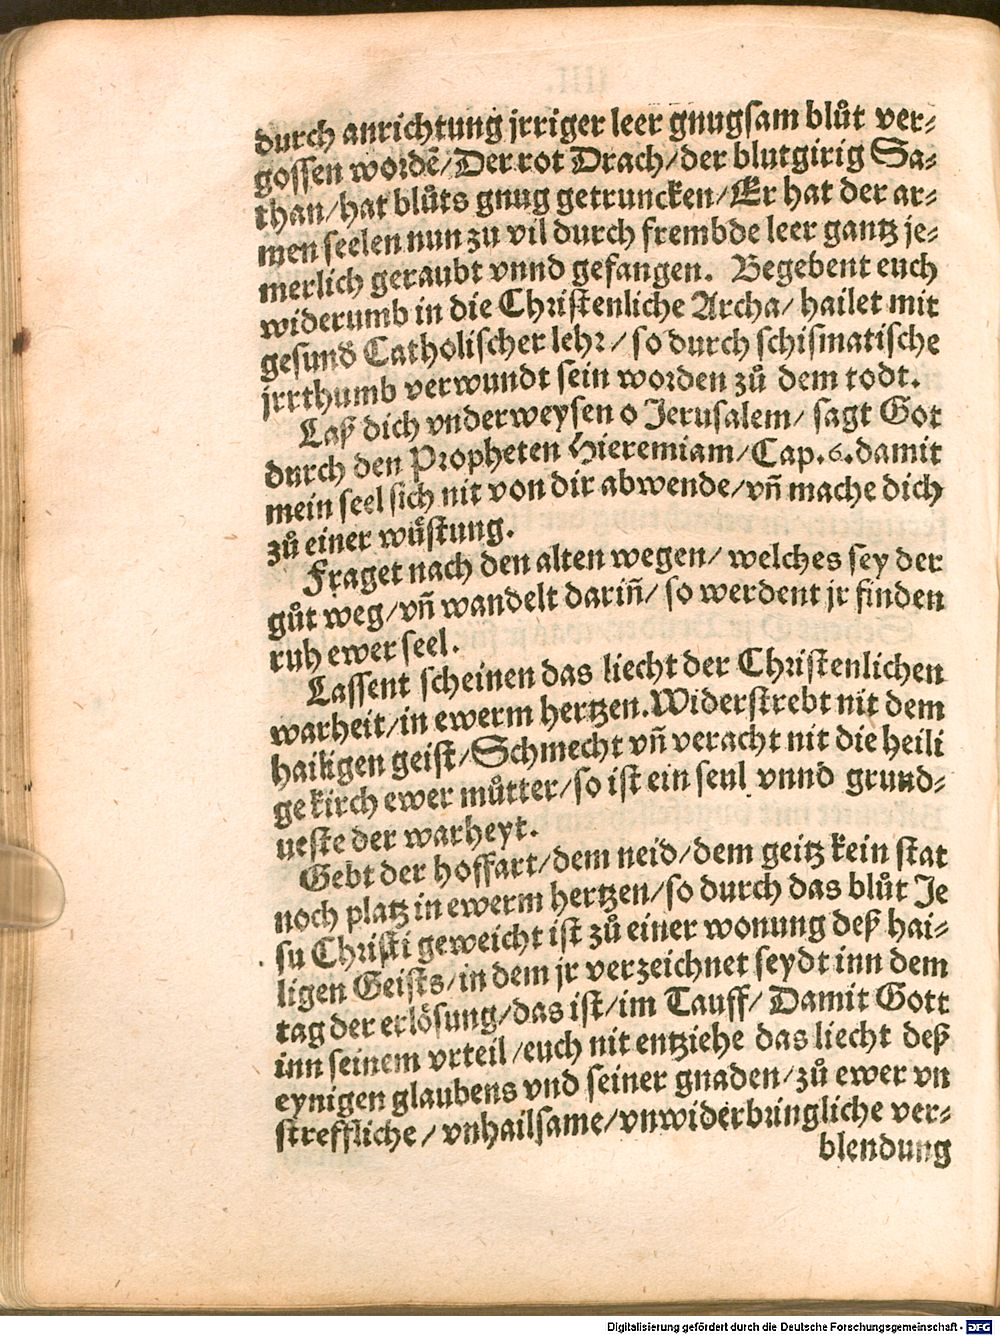 durch anrichtung jrriger leer gnugsam blůt ver⸗
gossen wordẽ/Der rot Drach/der blutgirig Sa⸗
than/hat blůts gnug getruncken/Er hat der ar⸗
men seelen nun zu vil durch frembde leer gantz je⸗
merlich geraubt vnnd gefangen. Begebent euch
widerumb in die Christenliche Archa/ hailet mit
gesund Catholischer lehr/ so durch schismatische
jrrthumb verwundt sein worden zů dem todt.
Laß dich vnderweysen o Jerusalem/ sagt Got
durch den Propheten Hieremiam/Cap.6.damit
mein seel sich nit von dir abwende/vñ mache dich
zů einer wůstung.
Fraget nach den alten wegen/ welches sey der
gůt weg/vñ wandelt dariñ/ so werdent jr finden
ruh ewer seel.
Lassent scheinen das liecht der Christenlichen
warheit/in ewerm hertzen.Widerstrebt nit dem
hailigen geist/Schmecht vñ veracht nit die heili
ge kirch ewer můtter/so ist ein seul vnnd grund⸗
ueste der warheyt.
Gebt der hoffart/dem neid/dem geitz kein stat
noch platz in ewerm hertzen/so durch das blůt Je
su Christi geweicht ist zů einer wonung deß hai⸗
ligen Geists/in dem jr verzeichnet seydt inn dem
tag der erlösung/das ist/im Tauff/ Damit Gott
inn seinem vrteil/euch nit entziehe das liecht deß
eynigen glaubens vnd seiner gnaden/zů ewer vn
streffliche/ vnhailsame/vnwiderbringliche ver⸗
blendung
Digitalisierung gefördert durch die Deutsche Forschungsgemeinschaft - DFG